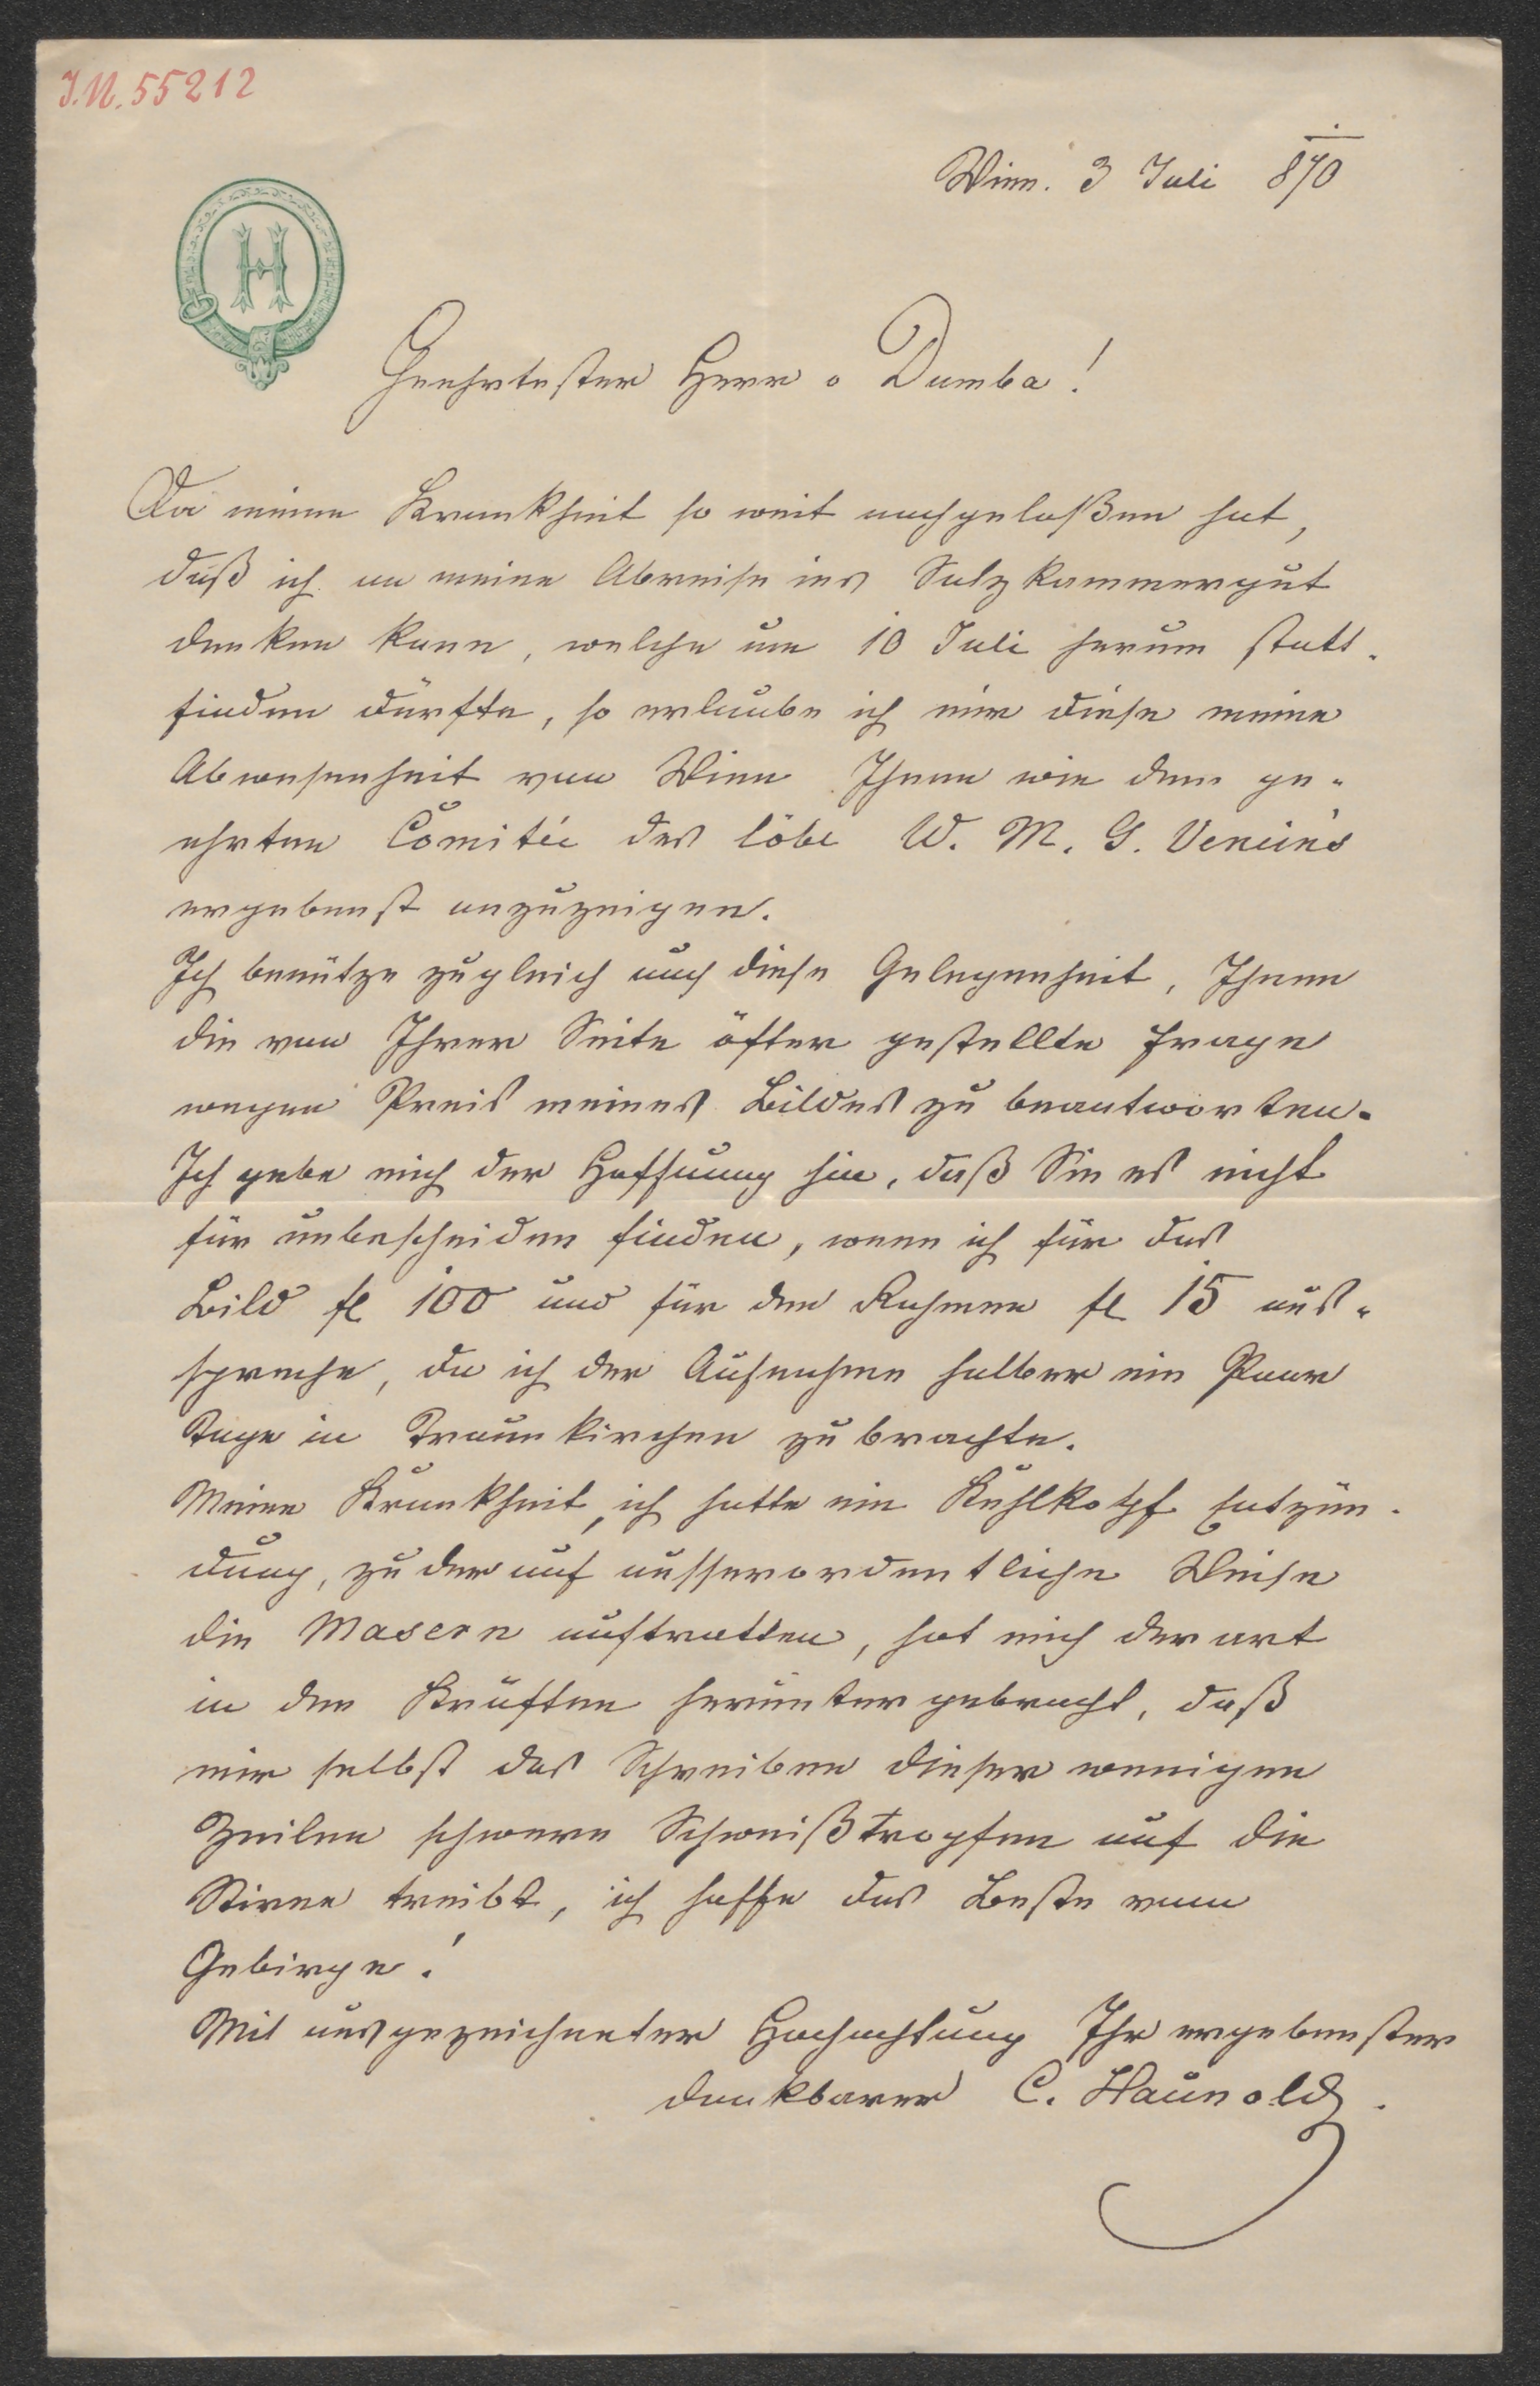 J.N. 55212
Wien. 3 Juli 870
H
Geehrtester Herr v Dumba!
Da meine Krankheit so weit nachgelaßen hat,
daß ich an meine Abreise ins Salzkammergut
denken kann, welche um 10 Juli herum statt-
finden dürfte, so erlaube ich mir diese meine
Abwesenheit von Wien Ihnen wie dem ge-
ehrten Comitée des löbl W. M. G. Vereins
ergebenst anzuzeigen.
Ich benütze zugleich auch diese Gelegenheit, Ihnen
die von Ihrer Seite öfter gestellte Frage
wegen Preis meines Bildes zu beantworten.
Ich gebe mich der Hoffnung hin, daß Sie es nicht
für unbescheiden finden, wenn ich für das
Bild fl 100 und für den Rahmen fl 15 aus-
spreche, da ich der Aufnahme halber ein Paar
Tage in Traunkirchen zubrachte.
Meine Krankheit, ich hatte ein Kehlkopf Entzün-
dung, zu der auf ausserordentliche Weise
die Masern auftratten, hat mich derart
in den Kräften heruntergebracht, daß
mir selbst das Schreiben dieser wenigen
Zeilen schwere Schweißtropfen auf die
Stirne treibt, ich hoffe das Beste vom
Gebirge!
Mit ausgezeichneter Hochachtung Ihr ergebenster
dankbarer C. Haunold.